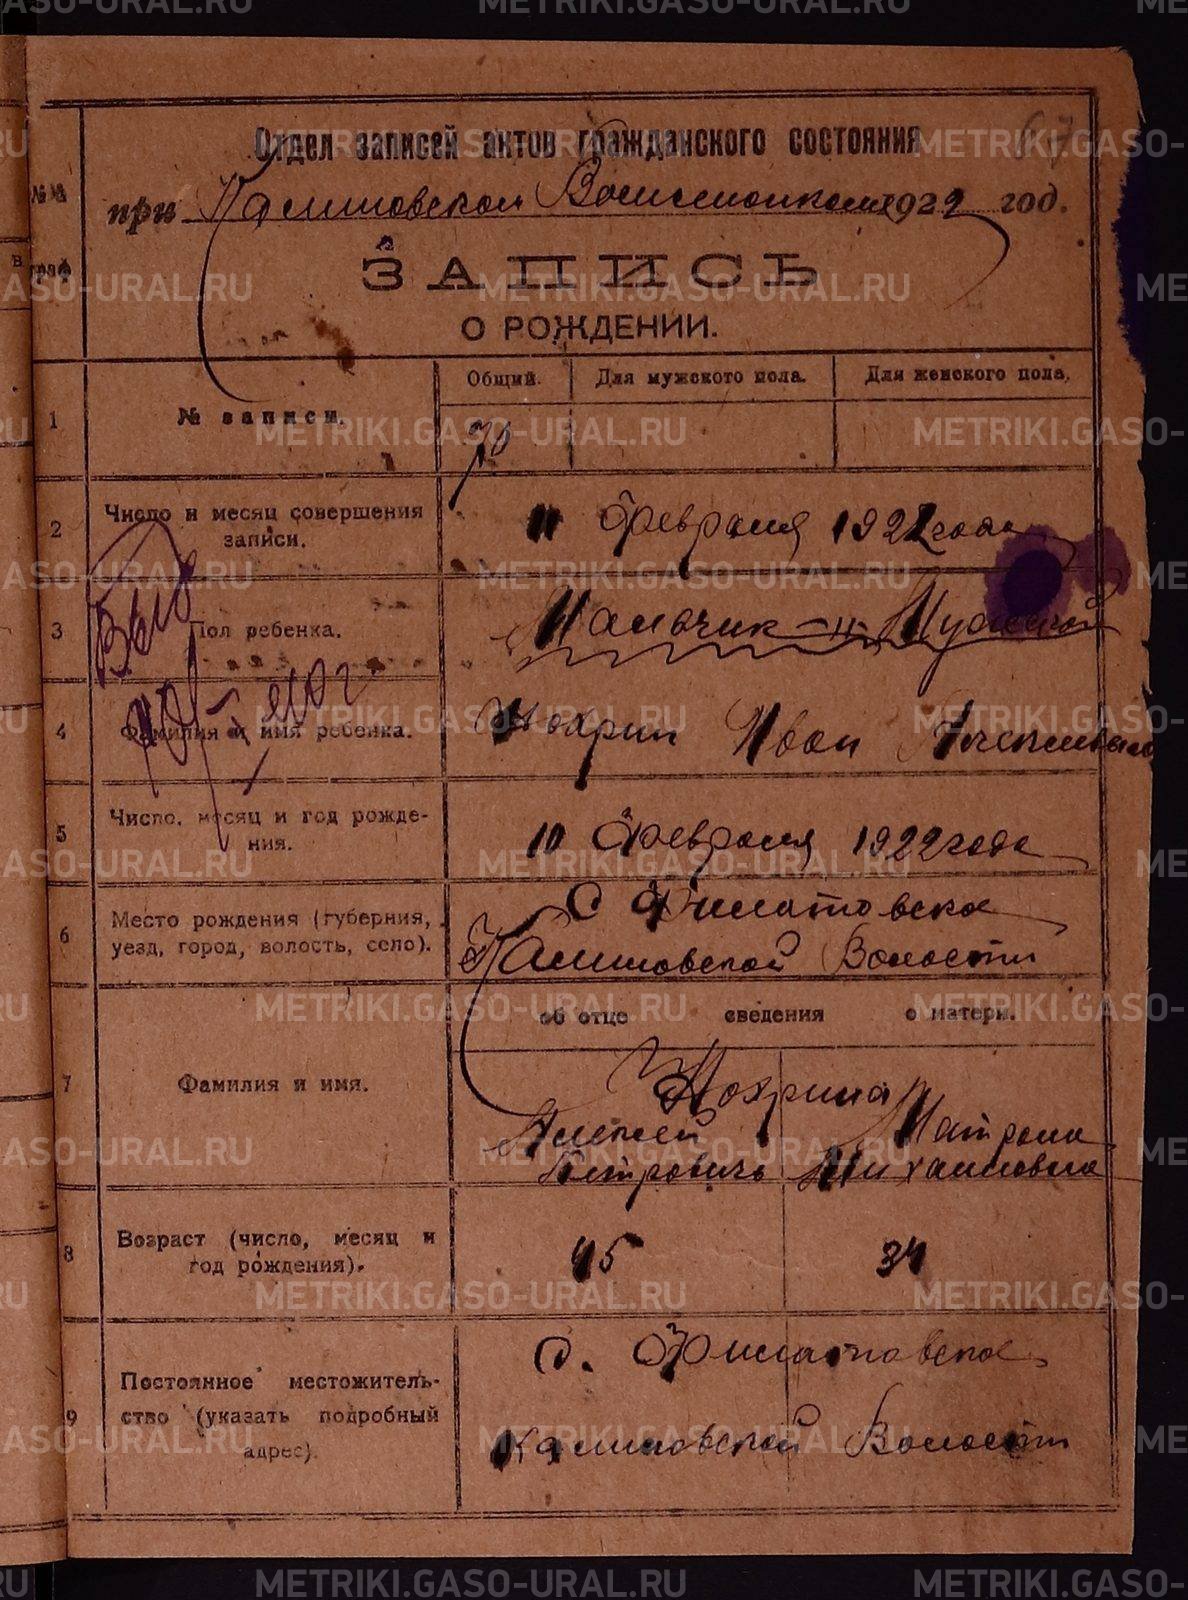 67
Отдел записей актов гражданского состояния
№№ граф
при Калиновской Волисполкоме 1922 год.
ЗАПИСЬ
О РОЖДЕНИИ.
Общий. Для мужского пола. Для женского пола.
1 № записи. 70
2 Число и месяц совершения записи. 11 Февраля 1922 года
3 Пол ребенка. Мальчик -"- Мужской
4 Фамилия и имя ребенка. Нохрин Иван
5 Число, месяц и год рождения. 10 Февраля 1922 года
6 Место рождения (губерния, уезд, город, волость, село). С Филатовское
Калиновской Волости
об отце сведения о матери.
7 Фамилия и имя. Нохрина
Алексей Матрона
Петровичъ Михаиловна
8 Возраст (число, месяц и год рождения). 45 34
9 Постоянное местожительство (указать подробный адрес). С. Филатовское
Калиновской Волости
METRIKI.GASO-URAL.RU